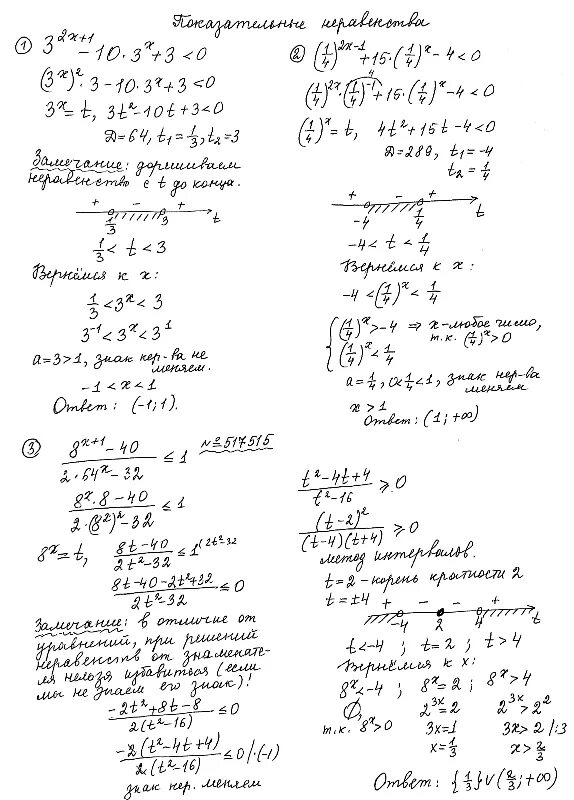 Показательные неравенства
① 3^{2x+1} - 10·3^x + 3 < 0
(3^x)^2·3 - 10·3^x + 3 < 0
3^x = t, 3t^2 - 10t + 3 < 0
D = 64, t_1 = 1/3, t_2 = 3
Замечание: дорешиваем
неравенство с t до конца.
+ - +
1/3 3 t
1/3 < t < 3
Вернёмся к x:
1/3 < 3^x < 3
3^{-1} < 3^x < 3^1
a = 3 > 1, знак нер-ва не
меняем.
-1 < x < 1
Ответ: (-1; 1).
② (1/4)^{2x-1} + 15·(1/4)^x - 4 < 0
4
(1/4)^{2x}·(1/4)^{-1} + 15·(1/4)^x - 4 < 0
(1/4)^x = t, 4t^2 + 15t - 4 < 0
D = 289, t_1 = -4
t_2 = 1/4
+ - +
-4 1/4 t
-4 < t < 1/4
Вернёмся к x:
-4 < (1/4)^x < 1/4
{ (1/4)^x > -4 ⇒ x - любое число,
т.к. (1/4)^x > 0
(1/4)^x < 1/4
a = 1/4, 0 < 1/4 < 1, знак нер-ва
меняем
x > 1
Ответ: (1; +∞)
③ (8^{x+1} - 40)/(2·64^x - 32) ≤ 1 №517515
(8^x·8 - 40)/(2·(8^x)^2 - 32) ≤ 1
8^x = t, (8t - 40)/(2t^2 - 32) ≤ 1 (2t^2-32
(8t - 40 - 2t^2 + 32)/(2t^2 - 32) ≤ 0
Замечание: в отличие от
уравнений, при решений
неравенств от знаменате-
ля нельзя избавиться (если
мы не знаем его знак)!
(-2t^2 + 8t - 8)/(2(t^2 - 16)) ≤ 0
(-2(t^2 - 4t + 4))/(2(t^2 - 16)) ≤ 0 /·(-1)
знак нер. меняем
(t^2 - 4t + 4)/(t^2 - 16) ≥ 0
(t - 2)^2/((t - 4)(t + 4)) ≥ 0
метод интервалов.
t = 2 - корень кратности 2
t = ±4
+ - - +
-4 2 4 t
t < -4 ; t = 2 ; t > 4
Вернёмся к x:
8^x < -4 ; 8^x = 2 ; 8^x > 4
∅, 2^{3x} = 2 2^{3x} > 2^2
т.к. 8^x > 0 3x = 1 3x > 2 /:3
x = 1/3 x > 2/3
Ответ: {1/3} ∪ (2/3; +∞)